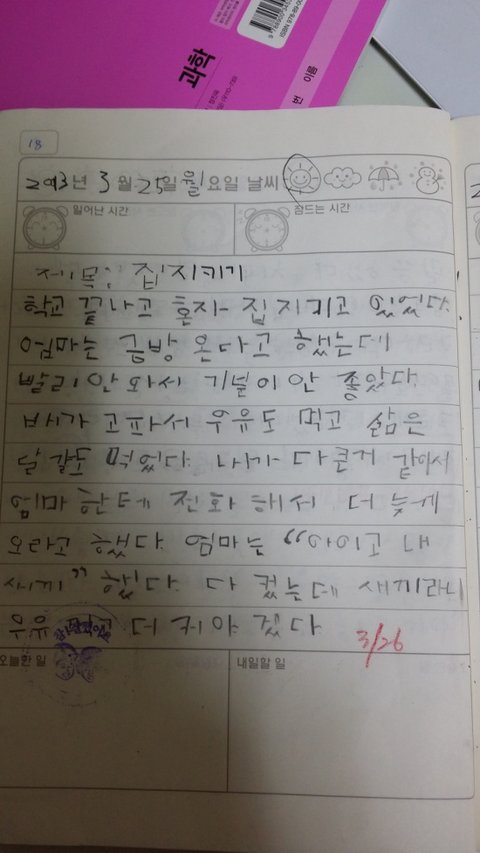 과학
번 이름
18
2013년 3월 25일 월요일 날씨
일어난 시간 잠드는 시간
제목: 집 지키기
학교 끝나고 혼자 집 지키고 있었다.
엄마는 금방 온다고 했는데
빨리 안 와서 기분이 안 좋았다.
배가 고파서 우유도 먹고 삶은
달걀도 먹었다. 내가 다 큰거 같아서
엄마 한테 전화 해서 더 늦게
오라고 했다. 엄마는 “아이고 내
새끼” 했다. 다 컸는데 새끼라니
우유 먹고 더 커야 겠다
3/26
오늘한 일 내일할 일